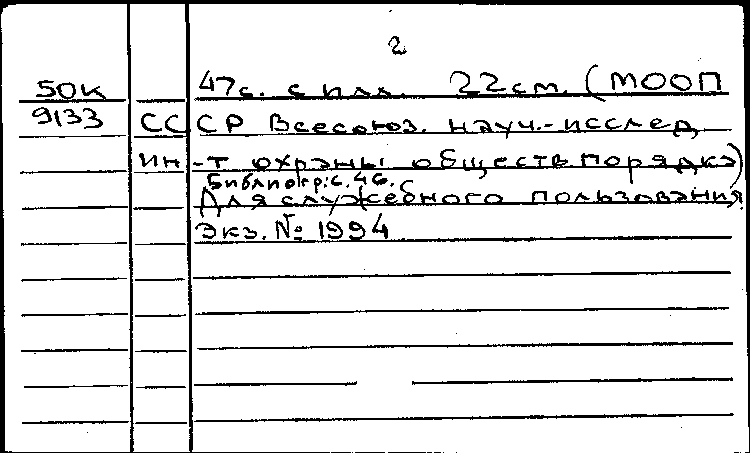 2
50К 47с. с илл. 22см. (МООП
9133 СССР Всесоюз. науч.-исслед
ин-т охраны обществ порядка)
Библиогр: с. 46.
Для служебного пользования
Экз. № 1994